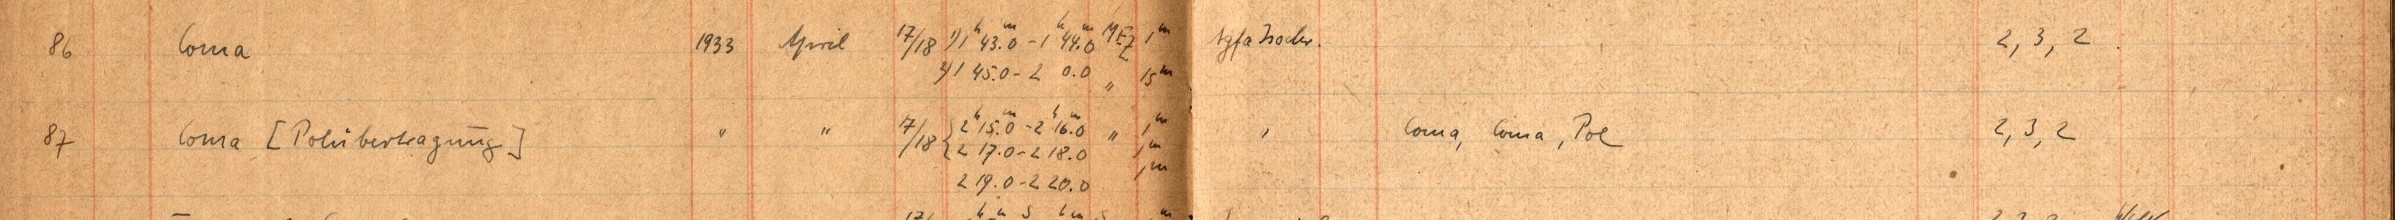 86 Coma 1933 April 17/18 1) 1ʰ 43.ᵐ0 - 1ʰ 44.ᵐ0 MEZ 1ᵐ Agfa Isochr. 2, 3, 2
2) 1 45.0 - 2 0.0 " 15ᵐ
87 Coma [Polübertragung] " " 17/18 { 2ʰ 15.ᵐ0 - 2ʰ 16.ᵐ0 " 1ᵐ " Coma, Coma, Pol 2, 3, 2
2 17.0 - 2 18.0 1ᵐ
2 19.0 - 2 20.0 1ᵐ